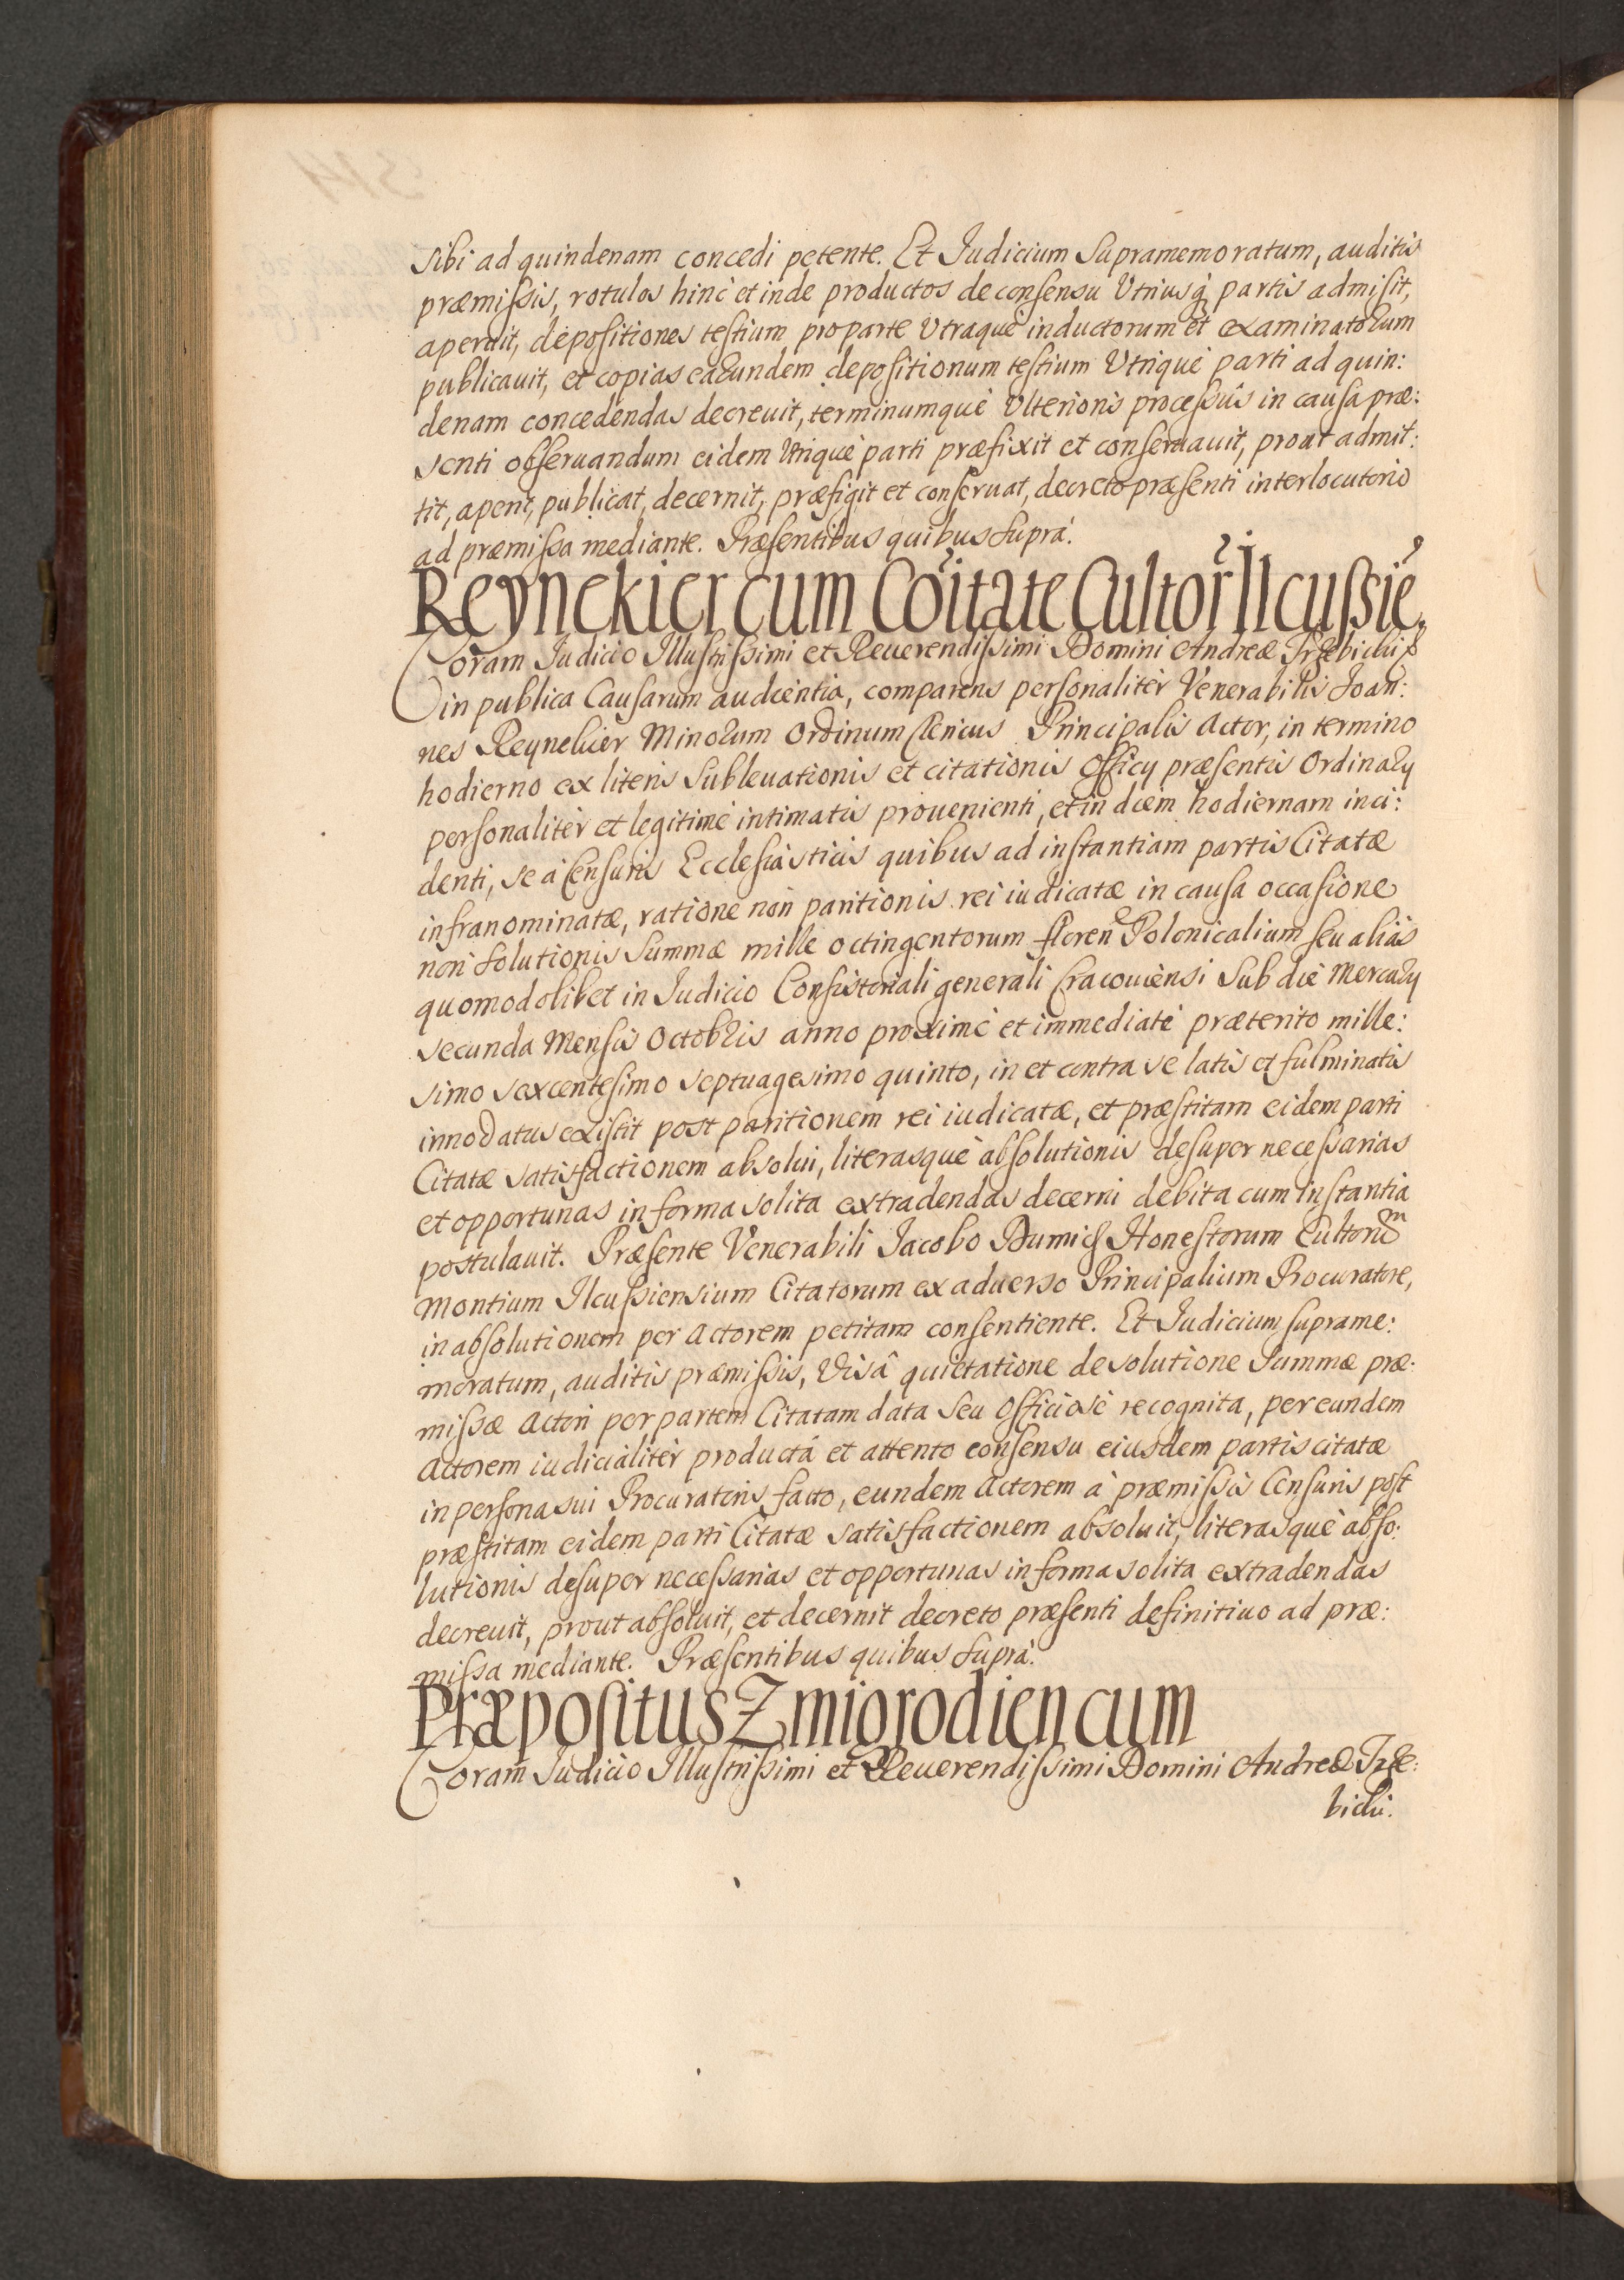 sibi ad quindenam concedi petente. Et Judicium Supramemoratum, auditis
præmissis, rotulos hinc et inde productos de consensu Utriusq; partis admisit,
aperuit, depositiones testium pro parte Utraquè inductorum et examinatorum
publicauit, et copias earundem depositionum testium Utriquè parti ad quin:
denam concedendas decreuit, terminumquè Ulterioris processûs in causa præ:
senti obseruandum eidem Utriquè parti præfixit et conseruauit, prout admit:
tit, aperit, publicat, decernit, præfigit et conseruat, decreto præsenti interlocutorio
ad præmissa mediante. Præsentibus quibus supra.
Reynekier cum Coĩtate Cultor Ilcussiẽ.
Coram Judicio Illustrissimi et Reuerendissimi Domini Andreæ Trzebicki
in publica Causarum audientia, comparens personalitèr Venerabilis Joan:
nes Reynekier Minorum Ordinum Clericus Principalis Actor, in termino
hodierno ex literis Subleuationis et citationis Officÿ præsentis Ordinarÿ
personalitèr et legitimè intimatis prouenienti, et in diem hodiernam inci:
denti, se à Censuris Ecclesiasticis quibus ad instantiam partis Citatæ
infranominatæ, ratione non paritionis rei iudicatæ in causa occasione
non solutionis Summæ mille octingentorum floren Polonicalium seu aliàs
quomodolibet in Judicio Consistoriali generali Cracouiensi Sub die Mercurÿ
secunda Mensis Octobris anno proximè et immediatè præterito mille:
simo sexcentesimo septuagesimo quinto, in et contra se latis et fulminatis
innodatus existit post paritionem rei iudicatæ, et præstitam eidem parti
Citatæ satisfactionem absolui, literasquè absolutionis desuper necessarias
et opportunas in forma solita extradendas decerni debita cum instantia
postulauit. Præsente Venerabili Jacobo Dumicz Honestorum Cultorũ
Montium Ilcussiensium Citatorum ex aduerso Principalium Procuratore,
in absolutionem per Actorem petitam consentiente. Et Judicium suprame:
moratum, auditis præmissis, Visâ quietatione de solutione Summæ præ:
missæ Actori per partem Citatam data seu Officiosè recognita, per eundem
Actorem iudicialitèr productâ et attento consensu eiusdem partis citatæ
in persona sui Procuratoris facto, eundem Actorem à præmissis Censuris post
præstitam eidem parti Citatæ satisfactionem absoluit, literasquè abso:
lutionis desuper necessarias et opportunas in forma solita extradendas
decreuit, prout absoluit, et decernit decreto præsenti definitiuo ad præ:
missa mediante. Præsentibus quibus suprà.
Præpositus Zmigrodien cum
Coram Judicio Illustrissimi et Reuerendissimi Domini Andreæ Trze:
bicki.